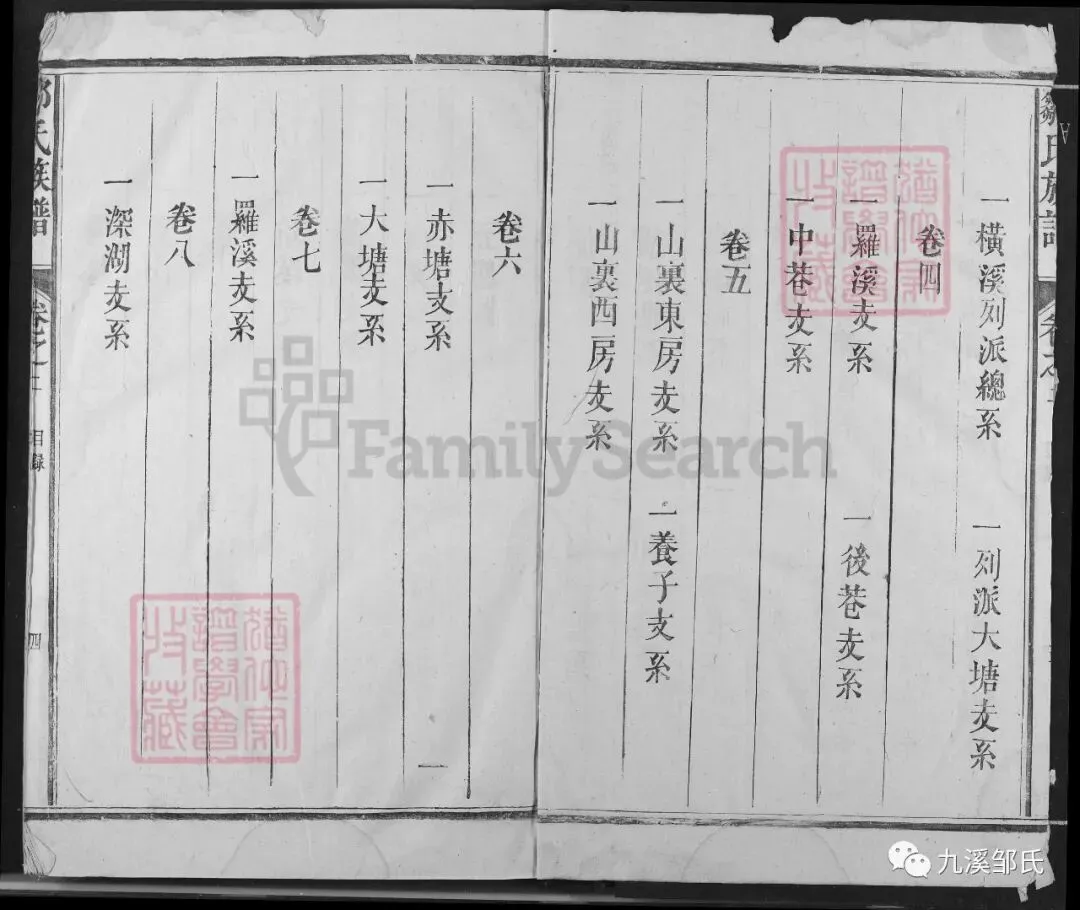 鄒氏族譜
一橫溪列派總系 一列派大塘支系
卷四
一羅溪支系 一後巷支系
一中巷支系
卷五
一山裏東房支系 一養子支系
一山裏西房支系
卷六
一赤塘支系 一
一大塘支系
卷七
一羅溪支系
卷八
一深湖支系
鄒氏族譜 卷之一 目錄 四
譜學會
收藏
譜學會
收藏
FamilySearch
九溪邹氏